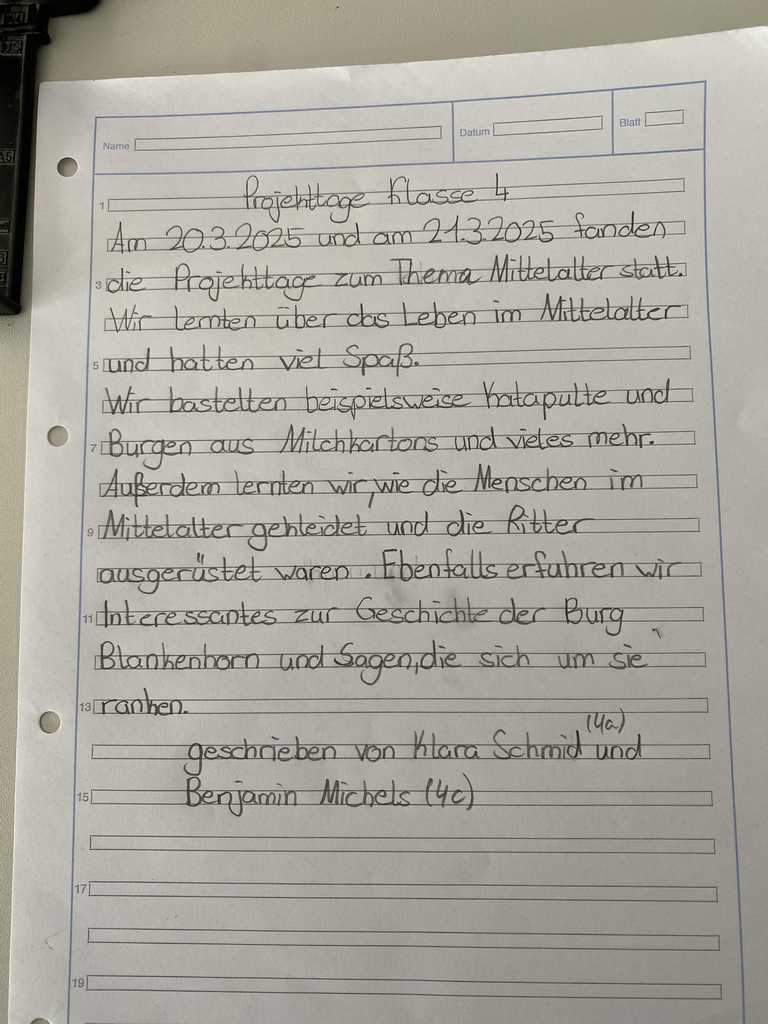 Name
Datum
Blatt
1 Projekttage Klasse 4
Am 20.3.2025 und am 21.3.2025 fanden
3 die Projekttage zum Thema Mittelalter statt.
Wir lernten über das Leben im Mittelalter
5 und hatten viel Spaß.
Wir bastelten beispielsweise Katapulte und
7 Burgen aus Milchkartons und vieles mehr.
Außerdem lernten wir, wie die Menschen im
9 Mittelalter gekleidet und die Ritter
ausgerüstet waren. Ebenfalls erfuhren wir
11 Interessantes zur Geschichte der Burg
Blankenhorn und Sagen, die sich um sie
13 ranken.
geschrieben von Klara Schmid (4a) und
15 Benjamin Michels (4c)
17
19